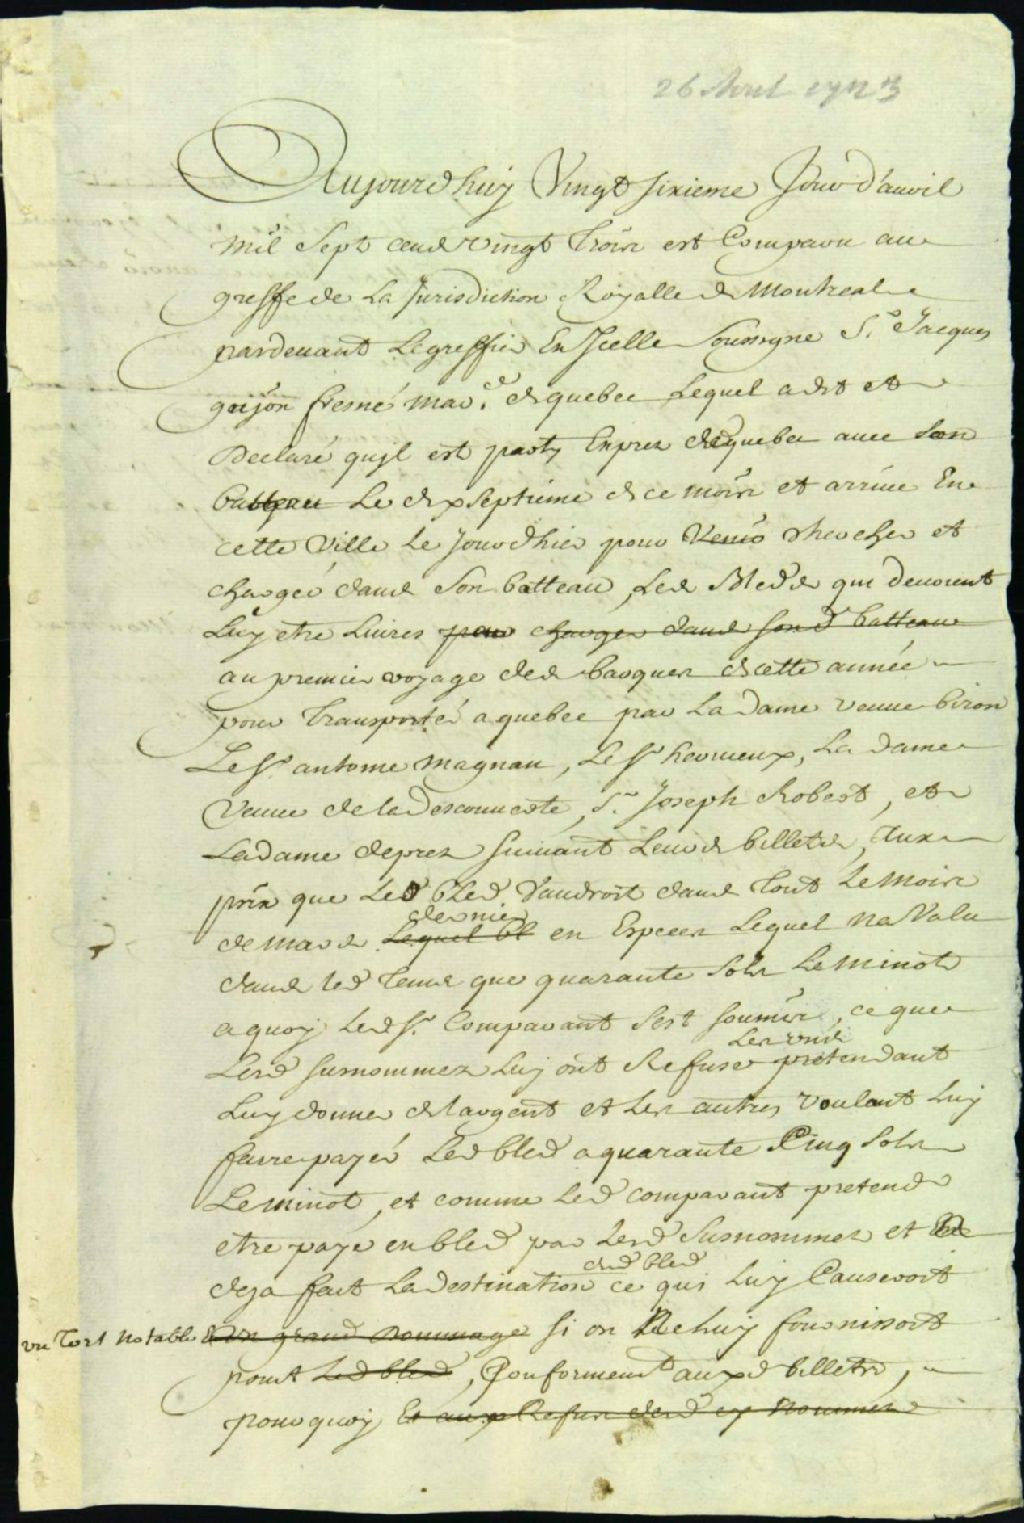 26 Avril 1723
Aujourdhuy Vingt sixieme Jour d'avril
mil sept cent vingt trois est Comparu au
greffe de La Jurisdiction Royalle de Montreal
pardevant Le greffier En Icelle Soussigne Sr. Jacques
goujon fresné mar. de quebec Lequel a dit et
Declaré quil est party Exprez de quebec avec son
batteau Le dixseptieme de ce mois et arrive En
cette Ville Le Jour dhier pour Venir chercher et
charger dans Son batteau, Les Bleds qui devoient
Luy etre Livres pour charger dans son d batteau
au premier voyage des barques de cette année
pour Transporter a quebec par La dame veuve biron
Le Sr. antoine magnan, Le Sr. heurneux, La dame
Veuve de la Descouverte, Sr. Joseph Robert, et
La dame deprez suivant Leurs billets, aux
prix que Led bled Vaudroit dans Tout Le Mois
dernier
de mars Lequel bl en Especes Lequel na Valu
dans led Temps que quarante Sols Le minot
a quoy Led Sr. Comparant sest soumis, ce que
Les uns
Lesd surnommez Luy ont Refusé pretendant
Luy donner de largent et Les autres voulant Luy
faire payer Led bled a quarante Cinq Sols
Le minot, et comme Led comparant pretend
etre paye en bled par Lesd Surnommez et
dud bled
deja fait La destination ce qui Luy Causeroit
un Tort notable un grand dommage si on Ne luy fournissoit
point Led bled, Conforment auxd billets,
pourquoy Et aux Refus desd cy nommez